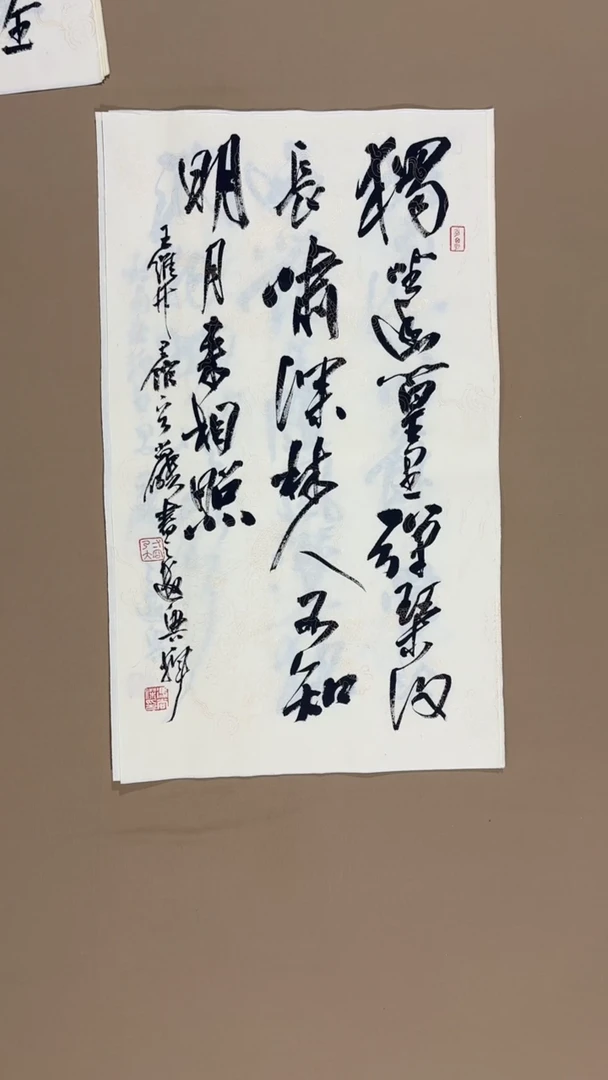 獨坐幽篁里彈琴復
長嘯深林人不知
明月來相照
王維竹里館